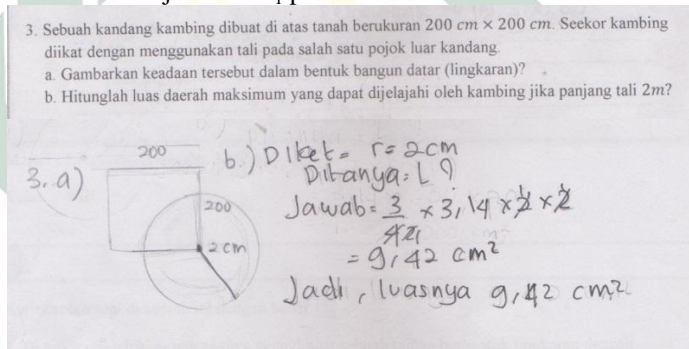 3. Sebuah kandang kambing dibuat di atas tanah berukuran 200 cm × 200 cm. Seekor kambing
diikat dengan menggunakan tali pada salah satu pojok luar kandang.
a. Gambarkan keadaan tersebut dalam bentuk bangun datar (lingkaran)?
b. Hitunglah luas daerah maksimum yang dapat dijelajahi oleh kambing jika panjang tali 2m?
3. a)
200
200
2 cm
b.) Diket = r = 2 cm
Ditanya: L ?
Jawab = 3/4 × 3,14 × 2 × 2
= 9,42 cm²
Jadi, luasnya 9,42 cm².